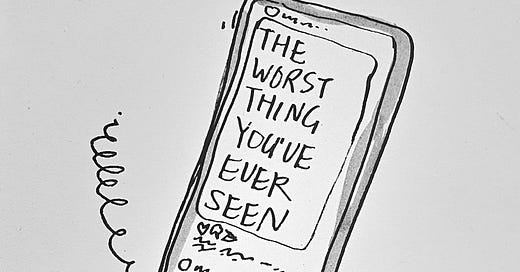 THE
WORST
THING
YOU'VE
EVER
SEEN